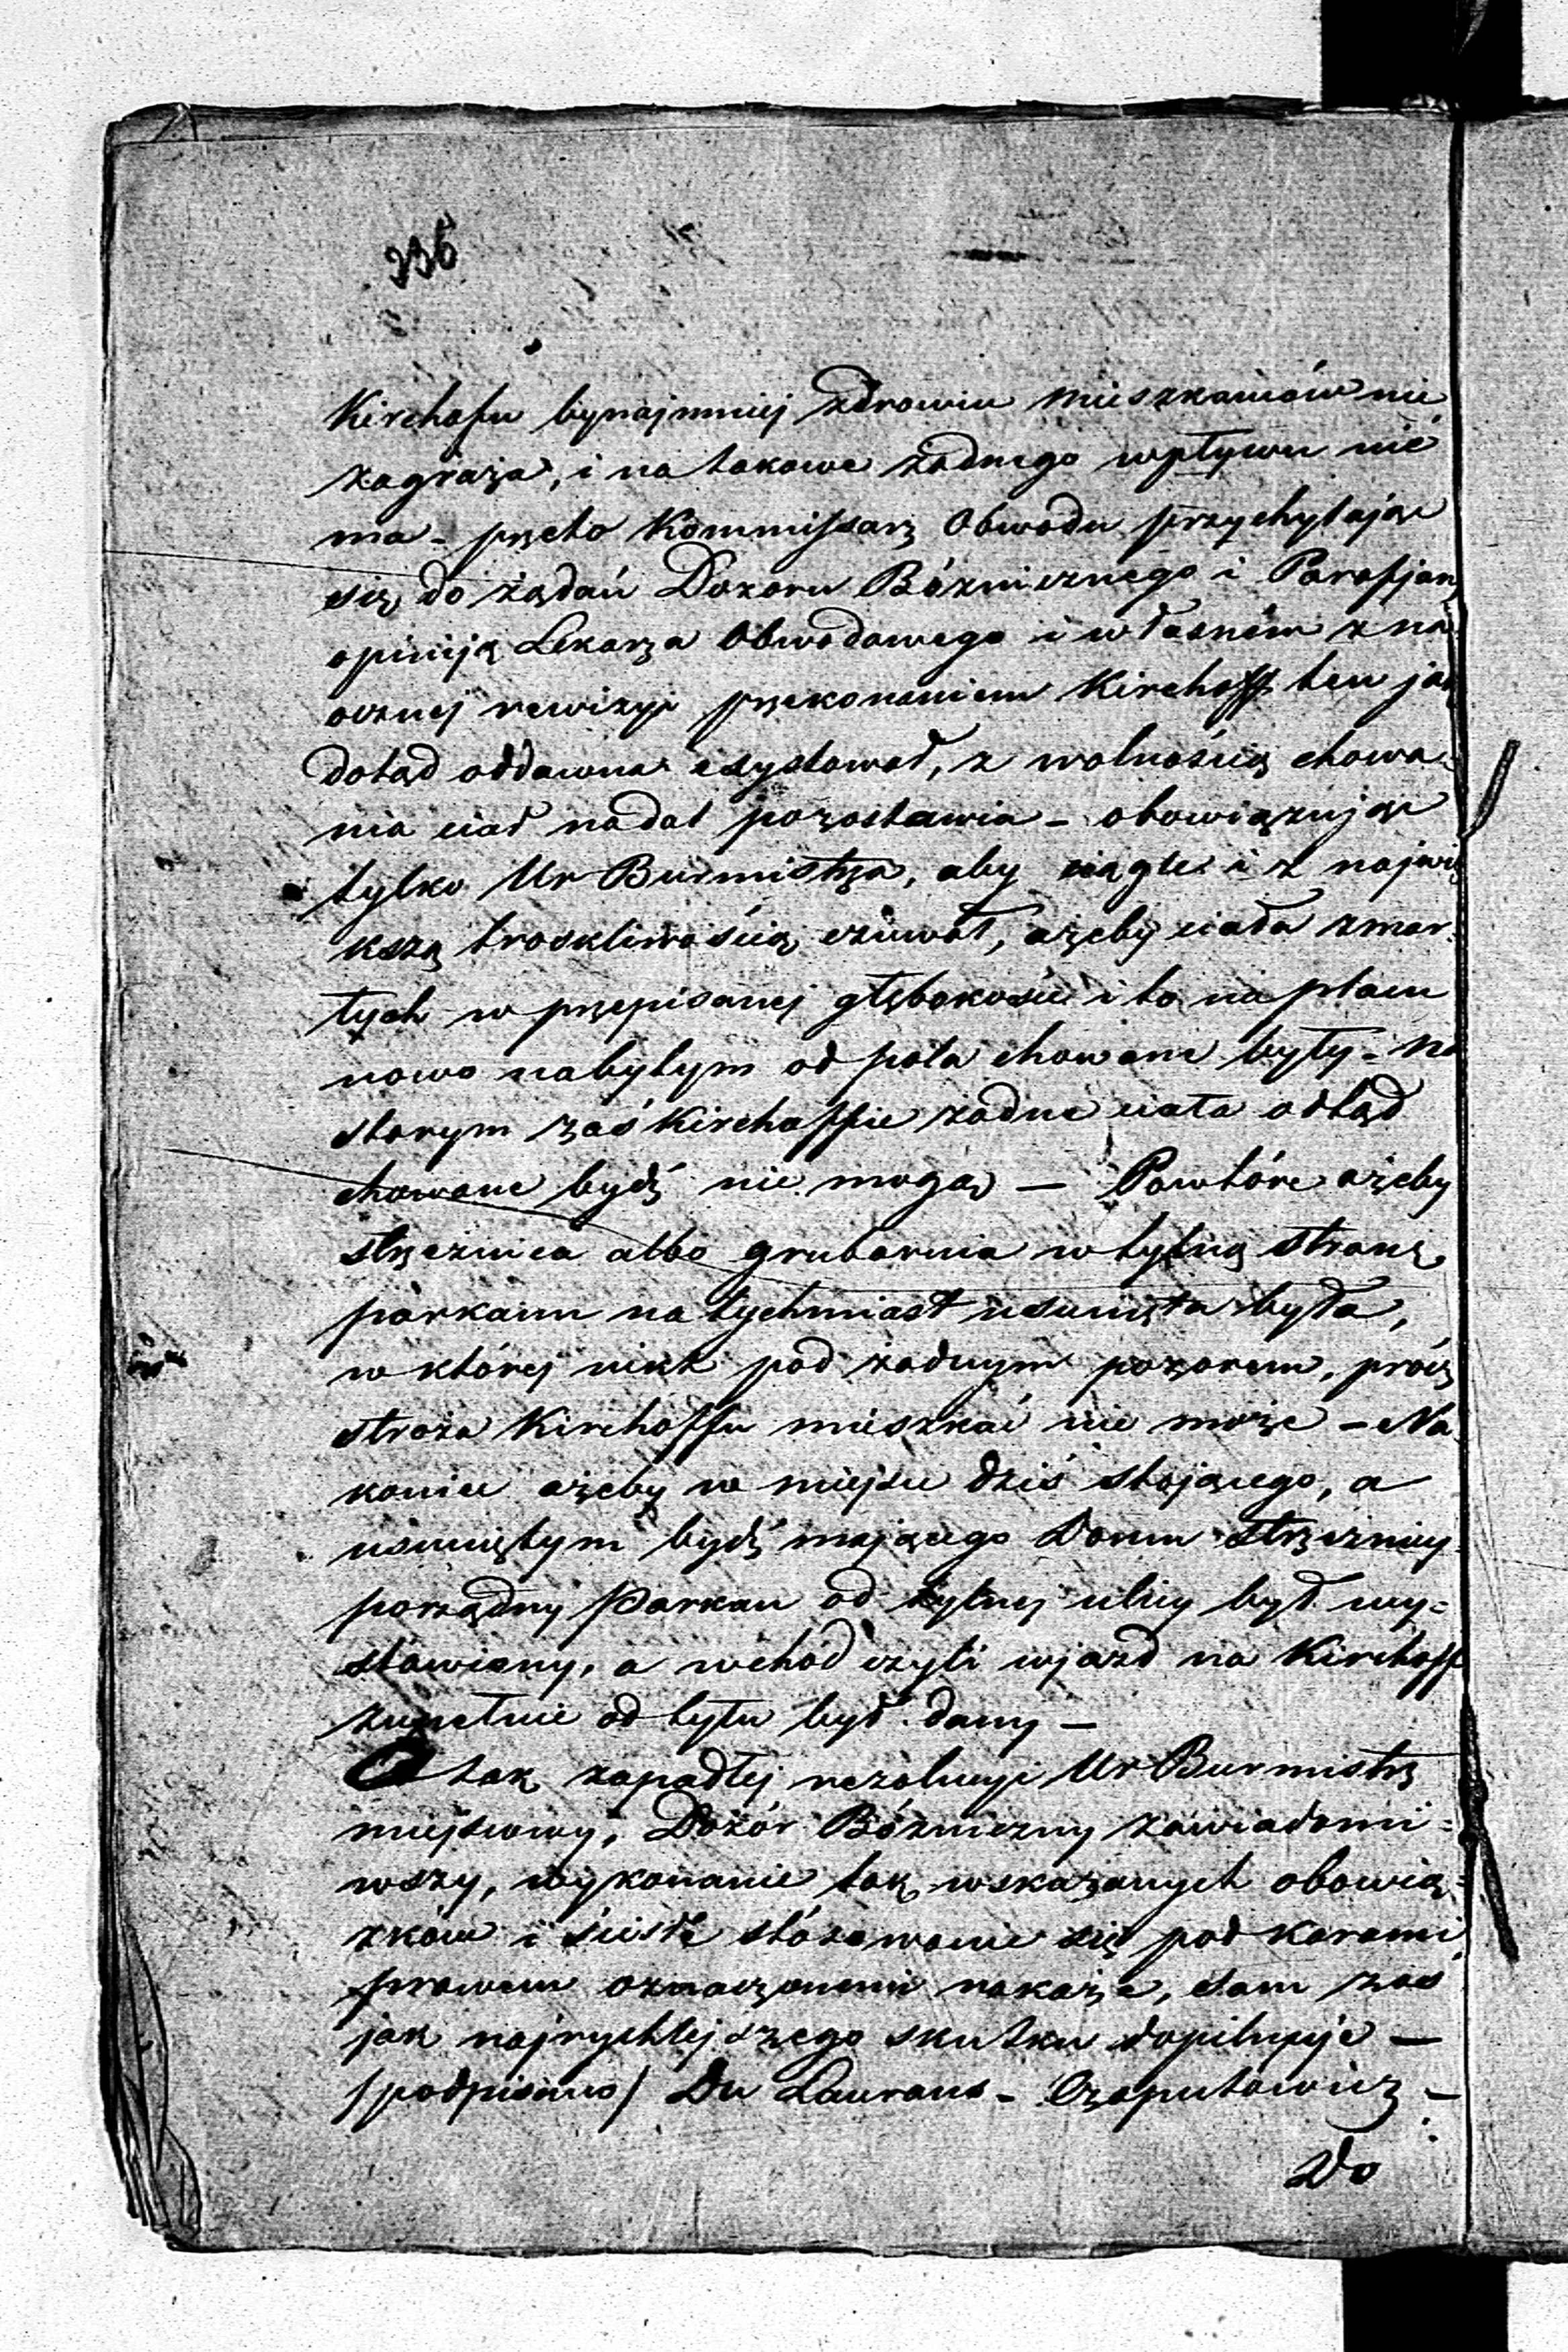 336
Kirchofu bynajmniej zdrowiu mieszkańców nie
zagraża, i na takowe żadnego wpływu nie
ma – przeto Kommissarz Obwodu przychylając
się do żądań Dozoru Bóżnicznego i Parafjan,
opiniją Lekarza Obwodowego i własném z na
ocznej rewizyi przekonaniem Kirchoff ten jak
dotąd oddawna exystował, z wolnością chowa-
nia ciał nadal pozostawia – obowiązując
tylko Ur Burmistrza, aby ciągle i z najwię
kszą troskliwością czuwał, ażeby ciała zmar-
łych w przepisanej głębokości i to na placu
nowo nabytym od pola chowane były – na
starym zaś Kirchoffie żadne ciała odtąd
chowane bydź nie mogą – Powtóre ażeby
strzeżnica albo grubarnia w tylną stronę
parkanu natychmiast usunięta była,
w której nikt pod żadnym pozorem, prócz
stroża Kirchoffu mieszkać nie może – Na
koniec ażeby w miejscu dziś stojącego, a
usuniętym bydź mającego Domu strzeżnicy
porządny Parkan od tylnej ulicy był wy=
stawiony, a wchód czyli wjazd na Kirchoff
zupełnie od tyłu był dany –
O tak zapadłej rezolucyi Ur Burmistrz
miejscowy, Dozór Bóżniczny zawiadomi=
wszy, wykonanie tak wskazanych obowią=
zków i ścisłe stósowanie się pod karami
prawem oznaczonemi nakaże, sam zaś
jak najrychlejszego skutku dopilnuje –
/podpisano/ Du Laurans – Czaputowicz –
Do